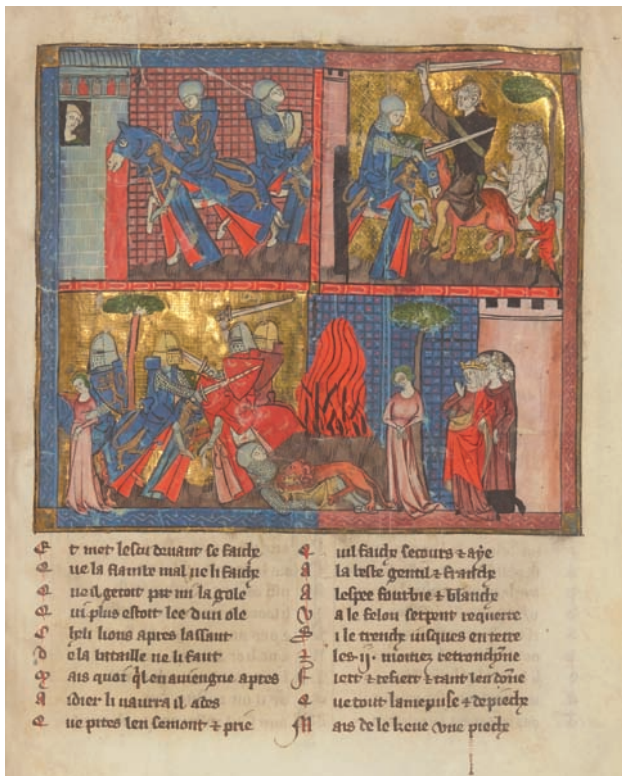 E t met lescu deuant se faiche
Q ue la flambe mal ne li faiche
Q ue il getoit par mi la gole
Q ui plus estoit lee dun ole
S li lions apres lassaut
D e la bataille ne li faut
M ais quoi ql en auiengne apres
A idier li vaurra il ades
Q ue pites len semont ⁊ prie
Q uil faiche secours ⁊ aye
A la beste gentil ⁊ franche
A lespee fourbie ⁊ blanche
V a le felon serpent requerre
S i le trenche iusques en terre
⁊ les .ij. moities
F iert ⁊ refiert ⁊ tant len done
Q ue tout lamenuse ⁊ depieche
M ais de le keue vne pieche